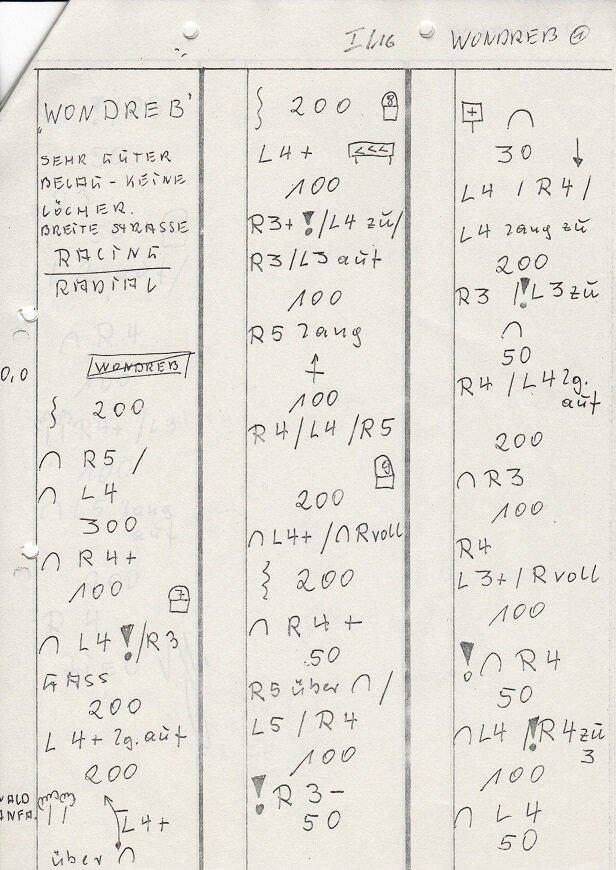 I/16 WONDREB 1
"WONDREB"
SEHR GUTER
BELAG - KEINE
LÖCHER.
BREITE STRASSE
RACING
RADIAL
0,0 WONDREB
} 200
∩ R5 /
∩ L4
300
∩ R4+
100
7
∩ L4 ! /R3
GASS
200
L4+ lg. auf
200
WALD
ANFA.
L4+
über ∩
} 200 8
L4+ <<<
100
R3+ ! /L4 zu/
R3/L3 auf
100
R5 lang
100
R4/L4/R5
9
200
∩L4+ /∩Rvoll
} 200
∩ R4+
50
R5 über ∩ /
L5 / R4
100
! R3-
50
+ ∩
30 ↓
L4 / R4 /
L4 lang zu
200
R3 / ! L3 zu
∩
50
R4 / L4 lg.
auf
200
∩ R3
100
R4
L3+/Rvoll
100
! ∩ R4
50
∩L4 / ! R4 zu
3
100
∩ L4
50